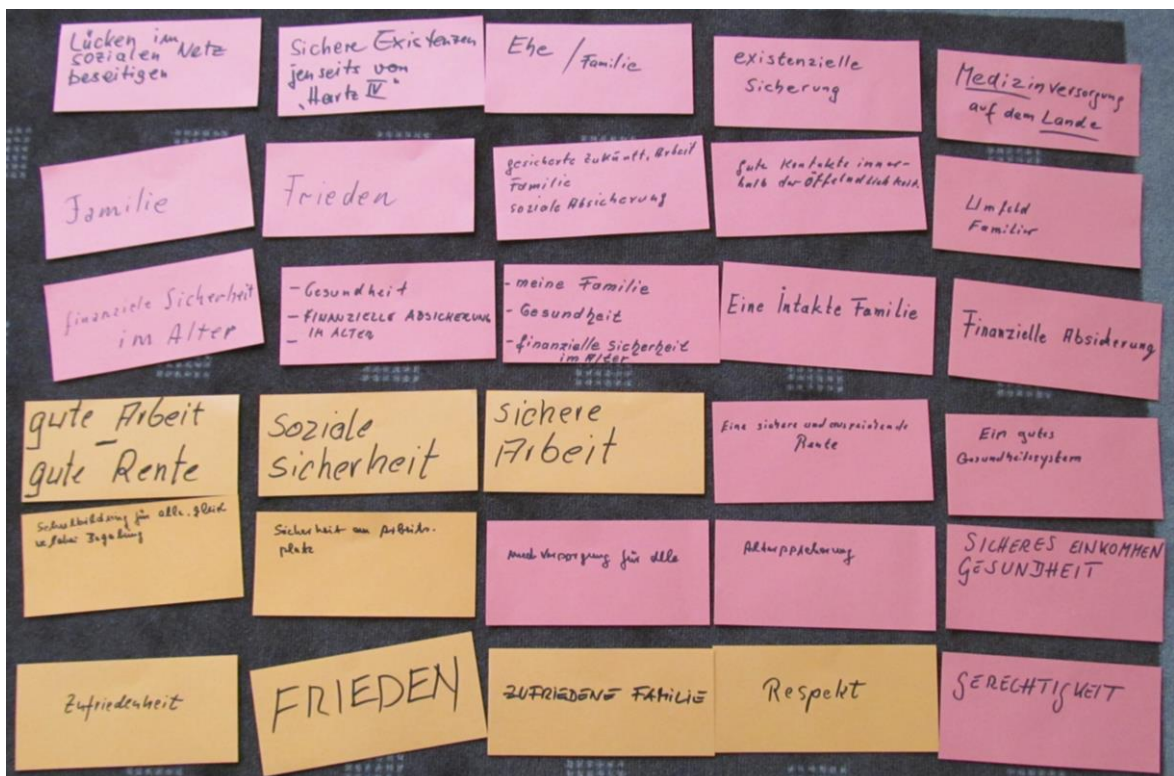 Lücken im
sozialen Netz
beseitigen
Sichere Existenzen
jenseits von
"Hartz IV"
Ehe / Familie
existenzielle
Sicherung
Medizinversorgung
auf dem Lande
Familie
Frieden
gesicherte Zukunft, Arbeit
Familie
soziale Absicherung
gute Kontakte inner-
halb der Öffendlichkeit.
Umfeld
Familie
finanzielle Sicherheit
im Alter
- Gesundheit
- FINANZIELLE ABSICHERUNG
IM ALTER
-
- meine Familie
- Gesundheit
- finanzielle Sicherheit
im Alter
Eine Intakte Familie
Finanzielle Absicherung
gute Arbeit
-
gute Rente
Soziale
Sicherheit
sichere
Arbeit
Eine sichere und ausreichende
Rente
Ein gutes
Gesundheitssystem
Schulbildung für alle, gleich
Begabung
Sicherheit am Arbeits-
platz
med Versorgung für alle
SICHERES EINKOMMEN
GESUNDHEIT
Zufriedenheit
FRIEDEN
ZUFRIEDENE FAMILIE
Respekt
GERECHTIGKEIT